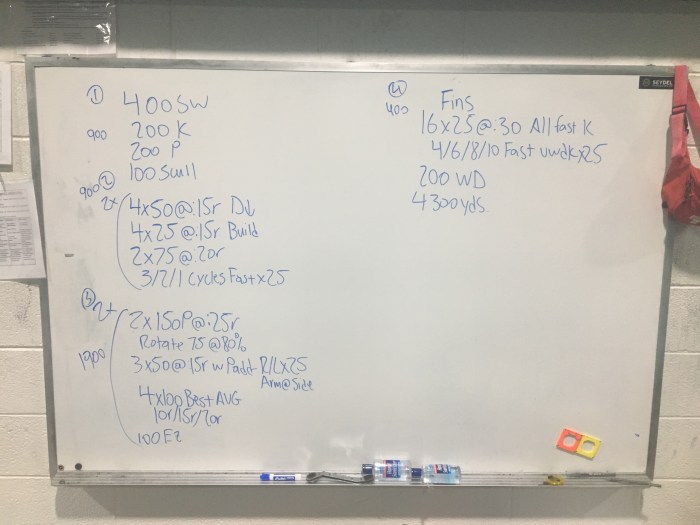 ① 400SW
900 200 K
200 P
100 Scull
900 ②
2x 4x50@:15r D↓
4x25@:15r Build
2x75@:20r
3/2/1 cycles Fast x25
③ 2x
1900
2x150P@:25r
Rotate 75@80%
3x50@15r w Padd R/Lx25
Arm@Side
4x100 Best AVG
10r/15r/20r
100 EZ
④
400
Fins
16x25@:30 All fast K
4/6/8/10 Fast uwdkx25
200 WD
4300yds
SEYDEL